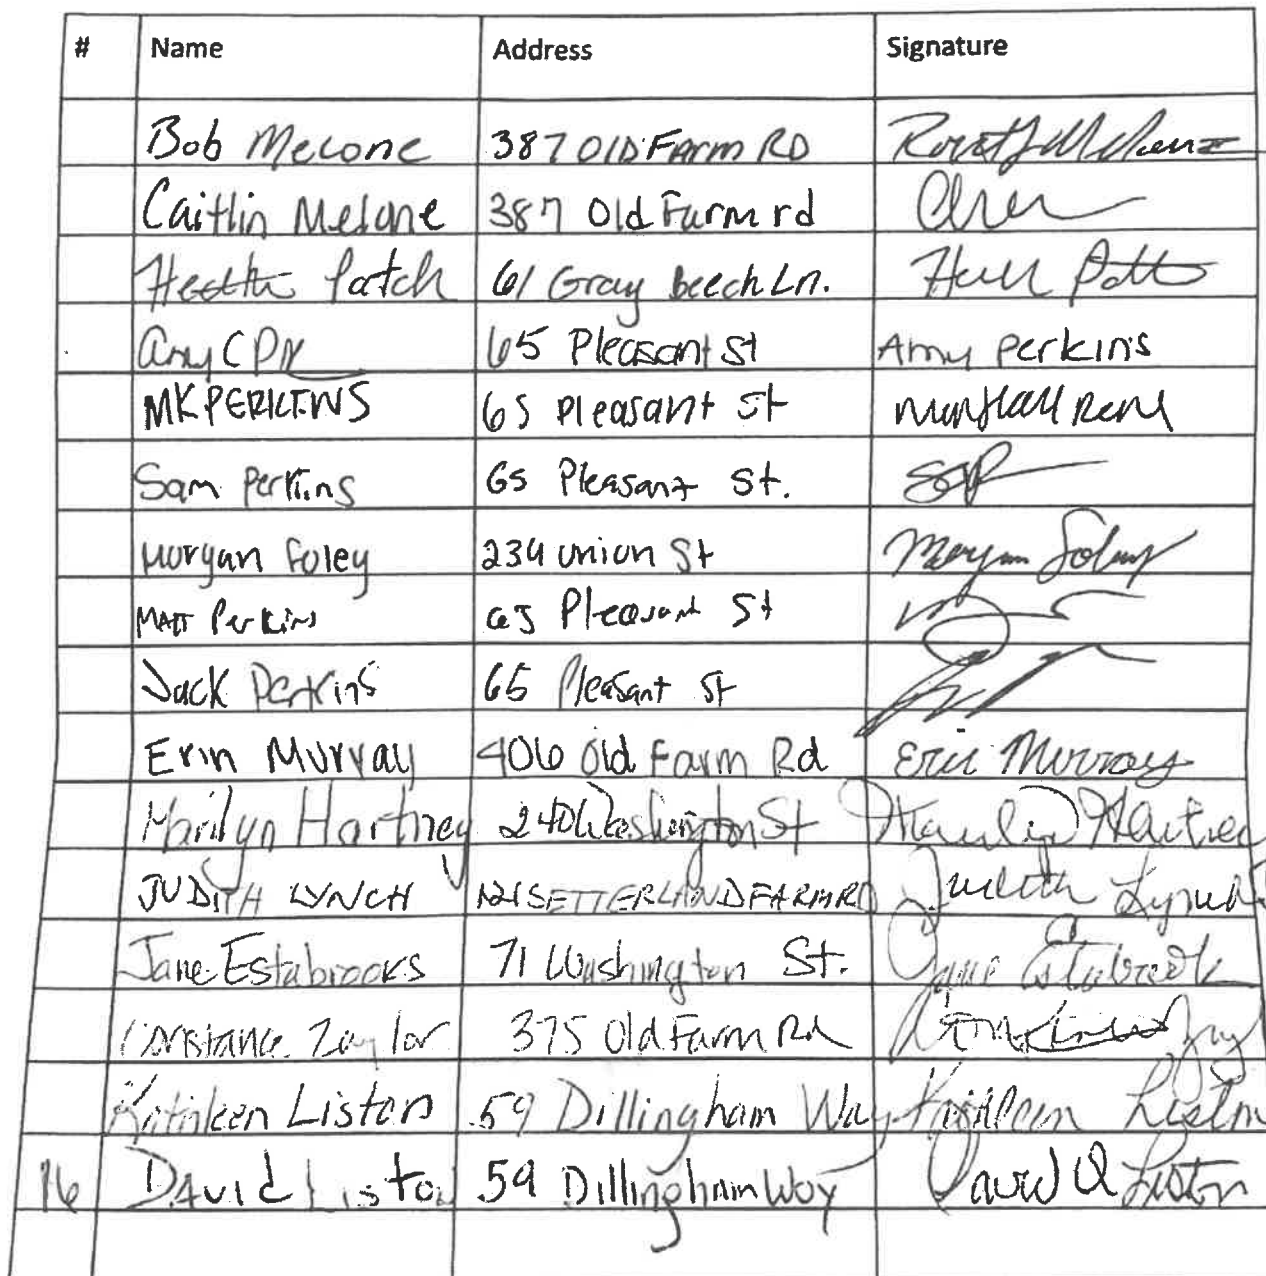 # Name Address Signature
Bob Melone 387 Old Farm RD
Caitlin Melone 387 Old Farm rd
Heath Patch 61 Gray Beech Ln.
Amy C 65 Pleasant St Amy Perkins
MK PERKINS 65 Pleasant St
Sam Perkins 65 Pleasant St.
Morgan Foley 234 Union St Morgan Foley
MATT Perkins 65 Pleasant St
Jack Perkins 65 Pleasant St
Erin Murray 406 Old Farm Rd Erin Murray
Marilyn Hartney 240 Washington St Marilyn Hartney
JUDITH LYNCH 121 SETTERLAND FARM RD Judith Lynch
Jane Estabrooks 71 Washington St. Jane Estabrooks
Constance Taylor 375 Old Farm Rd
Kathleen Liston 59 Dillingham Way Kathleen Liston
16 David Liston 59 Dillingham Way David Liston